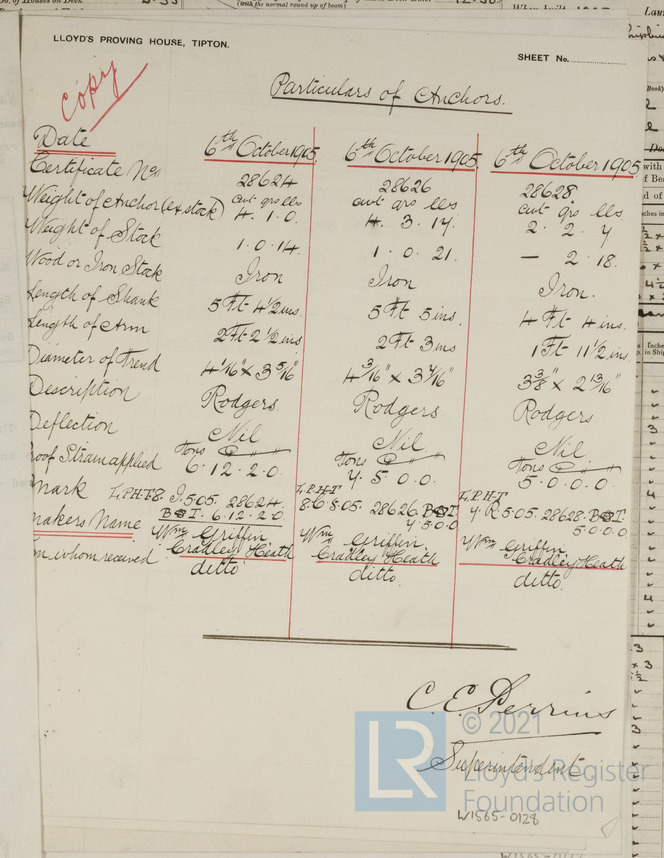 (with the normal round up of beam)
LLOYD'S PROVING HOUSE, TIPTON.
SHEET No.
Copy
Particulars of Anchors.
Date 6th October 1905 6th October 1905 6th October 1905
Certificate No 28624 28626 28628
Weight of Anchor (ex stock) cwt qrs lbs 4. 1. 0. cwt qrs lbs 4. 3. 14. cwt qrs lbs. 2. 2. 7
Weight of Stock 1. 0. 14. 1. 0. 21. — 2. 18.
Wood or Iron Stock Iron Iron Iron.
Length of Shank 5 Ft 4½ ins. 5 Ft 5 ins. 4 Ft 4 ins.
Length of Arm 2 Ft 2½ ins 2 Ft 3 ins 1 Ft 11½ ins
Diameter of Trend 4 1/16" x 3 5/16" 4 3/16" x 3 7/16" 3 3/8" x 2 13/16"
Description Rodgers. Rodgers Rodgers.
Deflection Nil Nil Nil
roof Strain applied Tons 6. 12. 2. 0. Tons 7. 5. 0. 0. Tons 5. 0. 0. 0.
mark L.P.H-T 8. J.5.05. 28624. L.P.H-T 8.6 8.05. 28626 L.P.H-T 7 R.5.05. 28628.
6.12.2.0 7.5.0.0 5.0.0.0
makers Name Wm Griffin Cradley Heath Wm Griffin, Cradley Heath Wm Griffin, Cradley Heath
whom received ditto. ditto. ditto.
C. E. Perrins
Superintendent.
© 2021
LR
Lloyd's Register
Foundation
W1565-0128